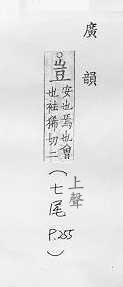 廣韻
豈
安也焉也曾
也袪狶切二
上聲
(七尾
P.255)